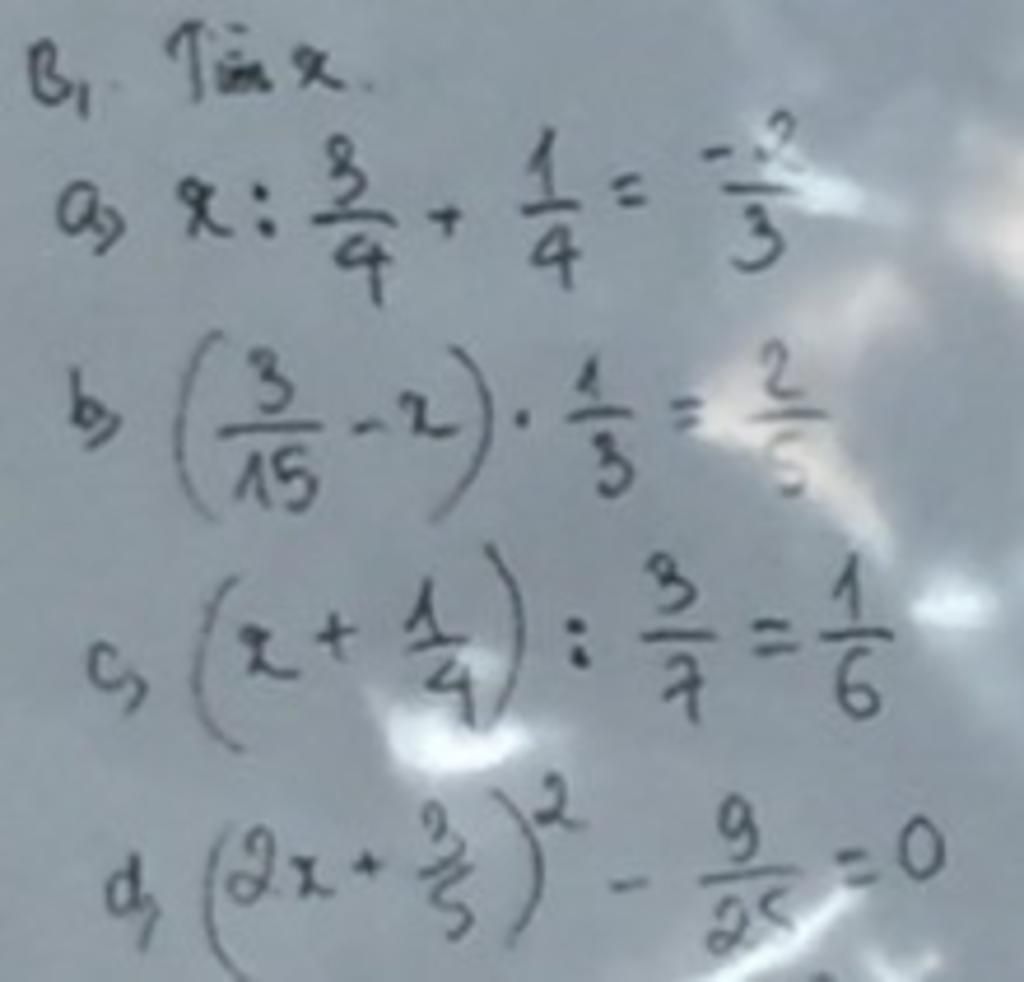 B, Tìm x.
a, x : 3/4 + 1/4 = -2/3
b, (3/15 - x) . 1/3 = 2/5
c, (x + 1/4) : 3/7 = 1/6
d, (2x + 3/5)² - 9/25 = 0